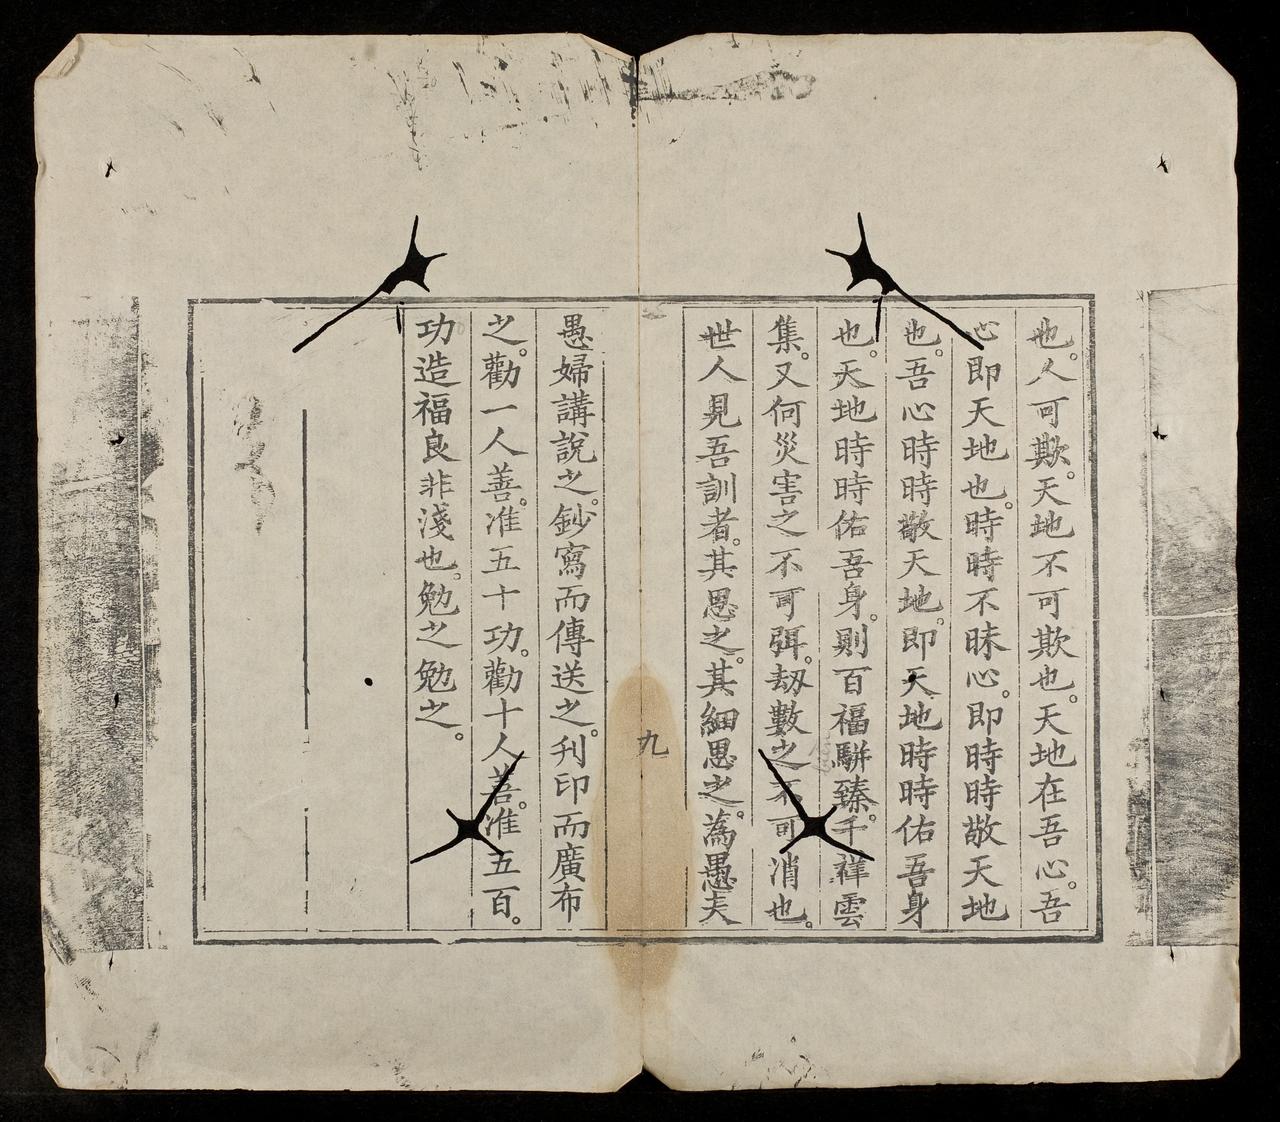 也。人可欺。天地不可欺也。天地在吾心。吾
心即天地也。時時不昧心。即時時敬天地
也。吾心時時敬天地。即天地時時佑吾身
也。天地時時佑吾身。則百福駢臻。千祥雲
集。又何災害之不可弭。劫數之不可消也。
世人見吾訓者。其思之。其細思之。為愚夫
九
愚婦講說之。鈔寫而傳送之。刊印而廣布
之。勸一人善。准五十功。勸十人善。准五百。
功造福良非淺也。勉之勉之。